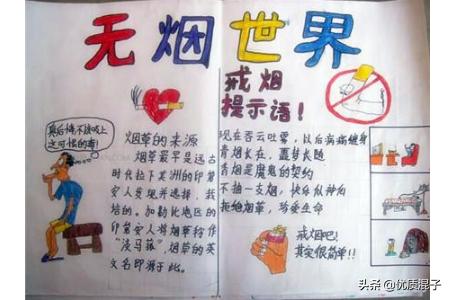 无烟世界
戒烟
提示语！
真后悔不该吸上
这可恨的毒！
烟草的来源
烟草最早是远古
时代拉丁美洲的印第
安人发现并选择，栽
培的。加勒比地区的
印第安人将烟草称作
“淡马菰”，烟草的英
文名即源于此。
现在吞云吐雾，以后病痛缠身
青烟长在，噩梦长随
香烟是魔鬼的契约
不抽一支烟，快乐似神仙
拒绝烟草，珍爱生命
戒烟吧！
其实很简单！！
头条 @优质混子